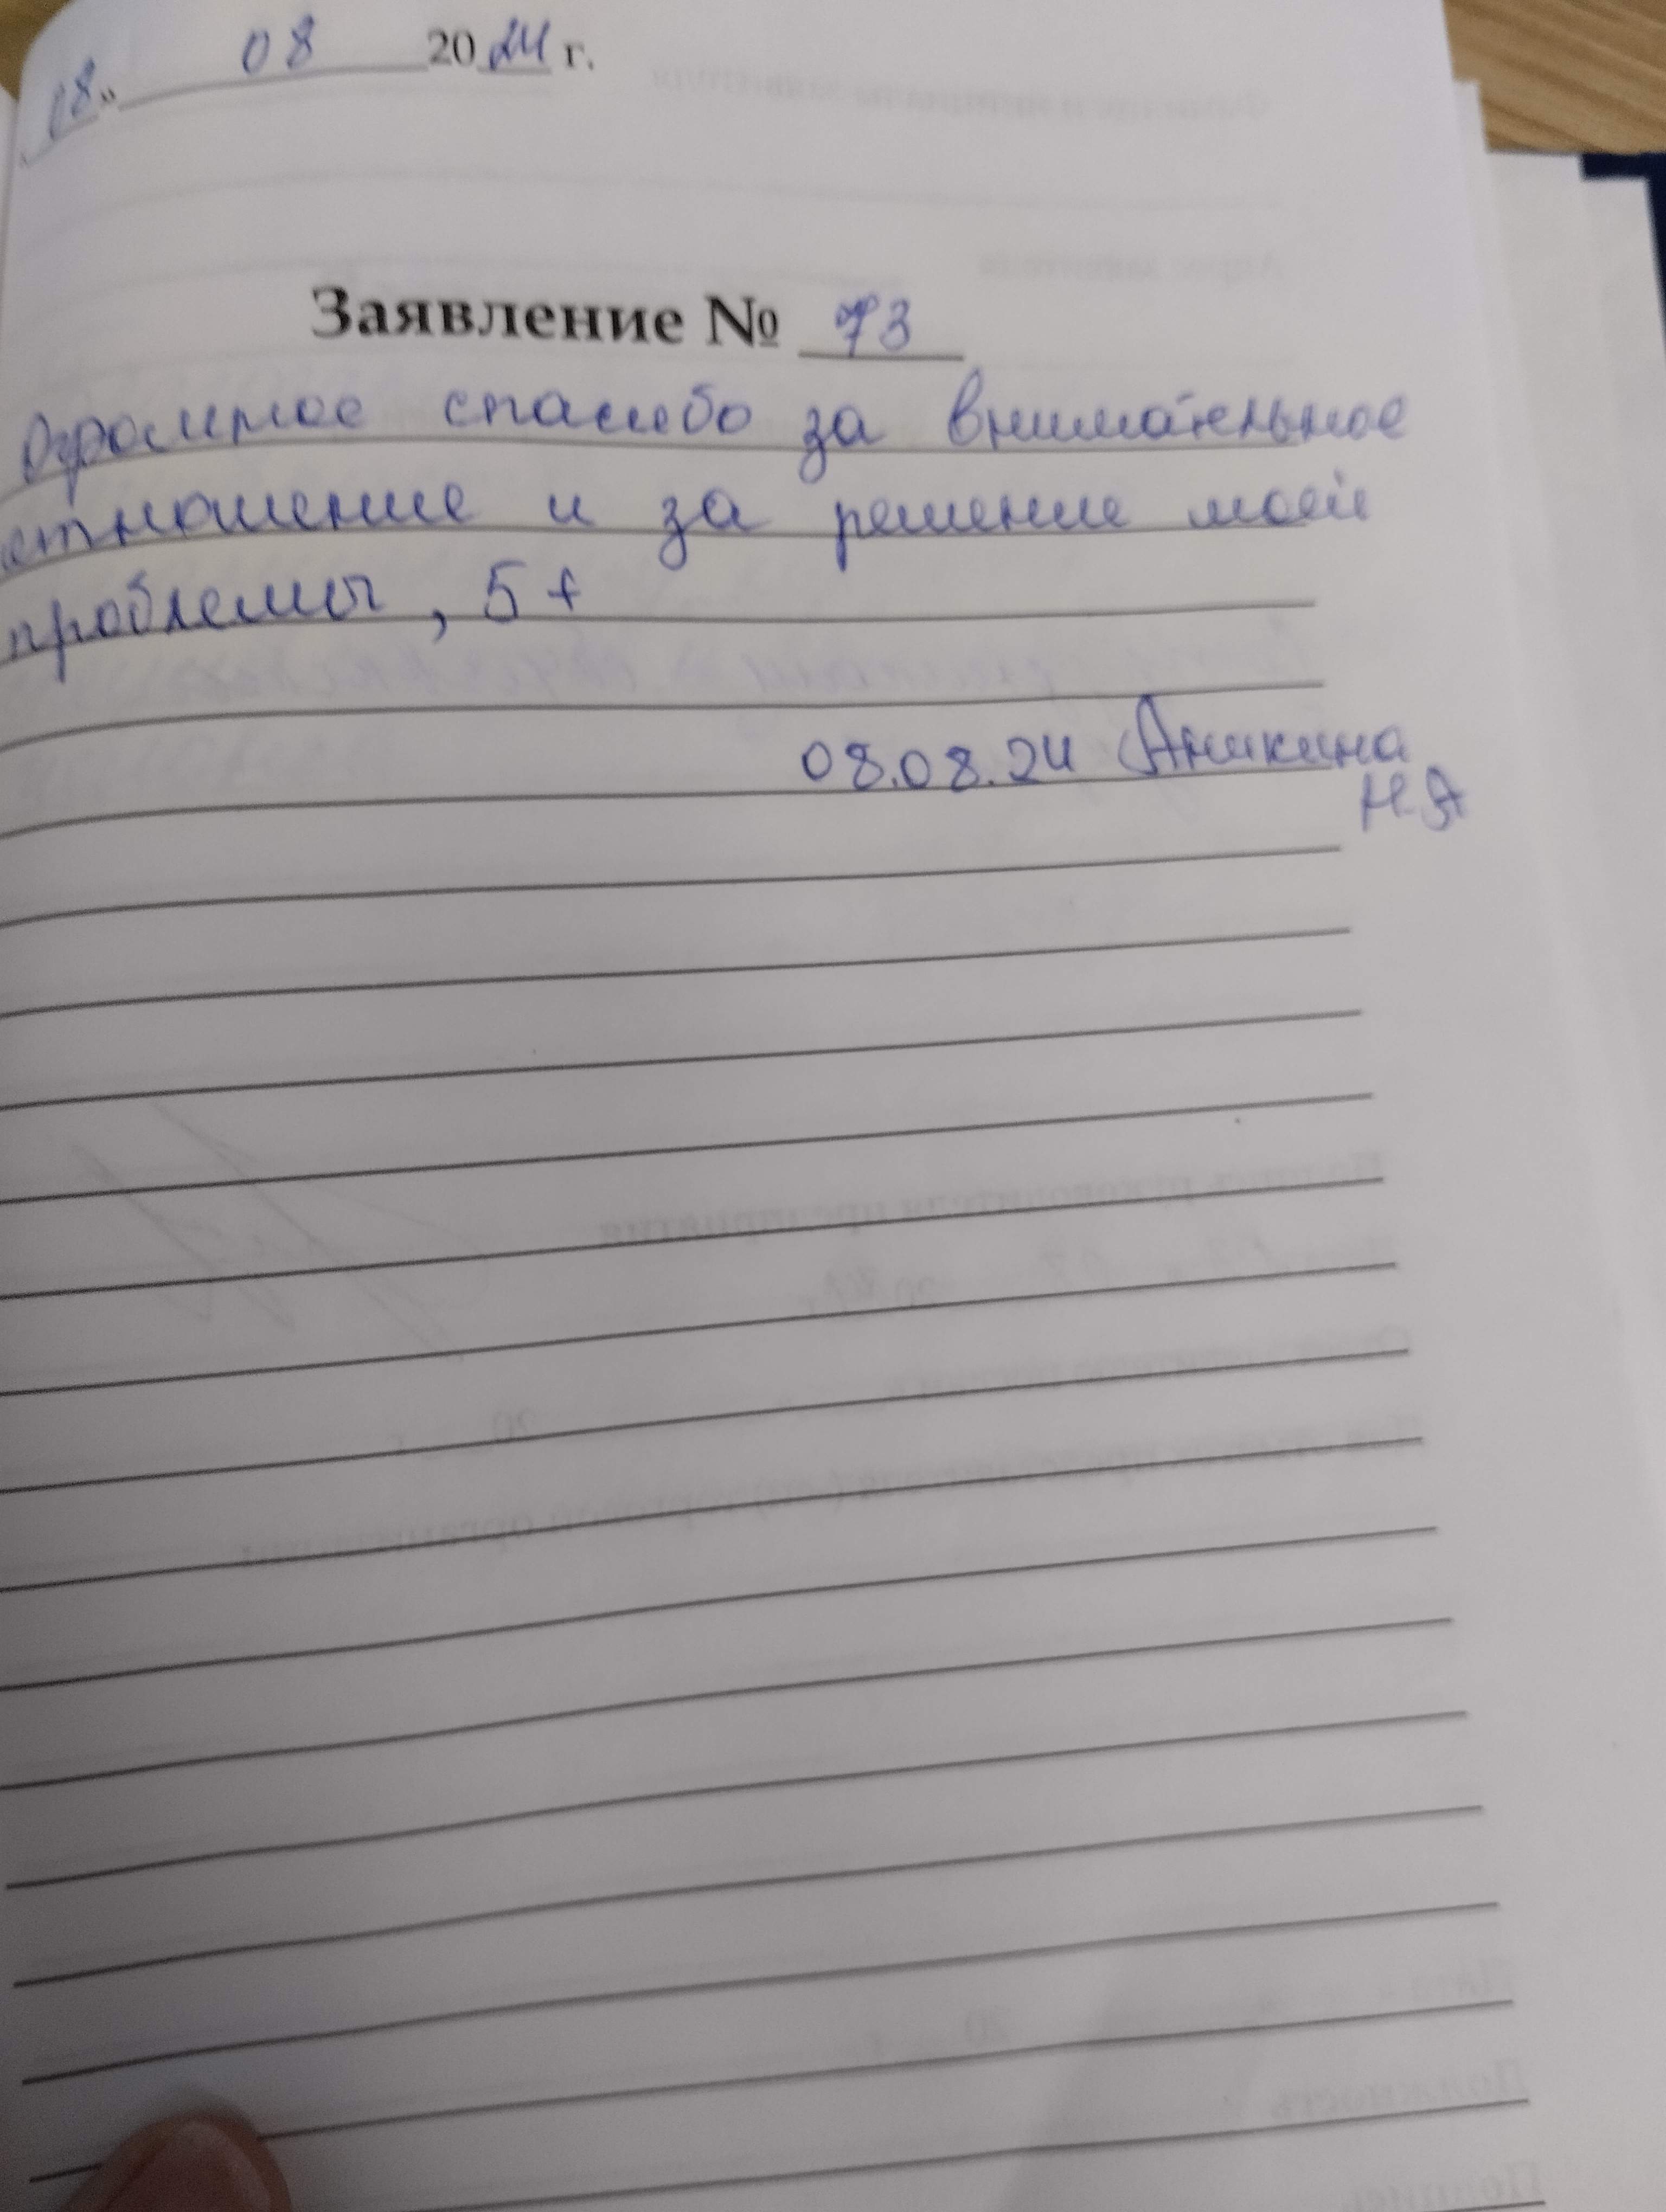 08" 08 2024 г.
Заявление № 73
Огромное спасибо за внимательное
отношение и за решение моей
проблемы, 5+
08.08.24 Аникина
Н.А